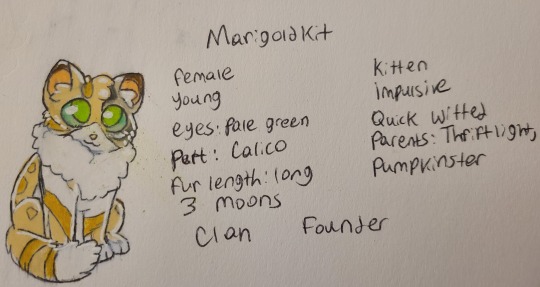 Marigoldkit
female
young
eyes: Pale green
Pelt: Calico
Fur length: long
3 moons
Kitten
impulsive
Quick witted
Parents: Thriftlight,
Pumpkinster
Clan Founder